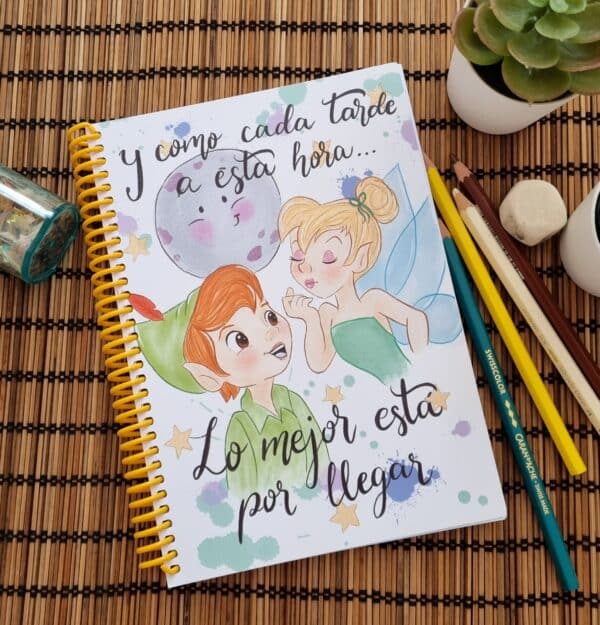 Y como cada tarde
a esta hora...
Lo mejor está
por llegar
SWISSCOLOR
CARAN D'ACHE